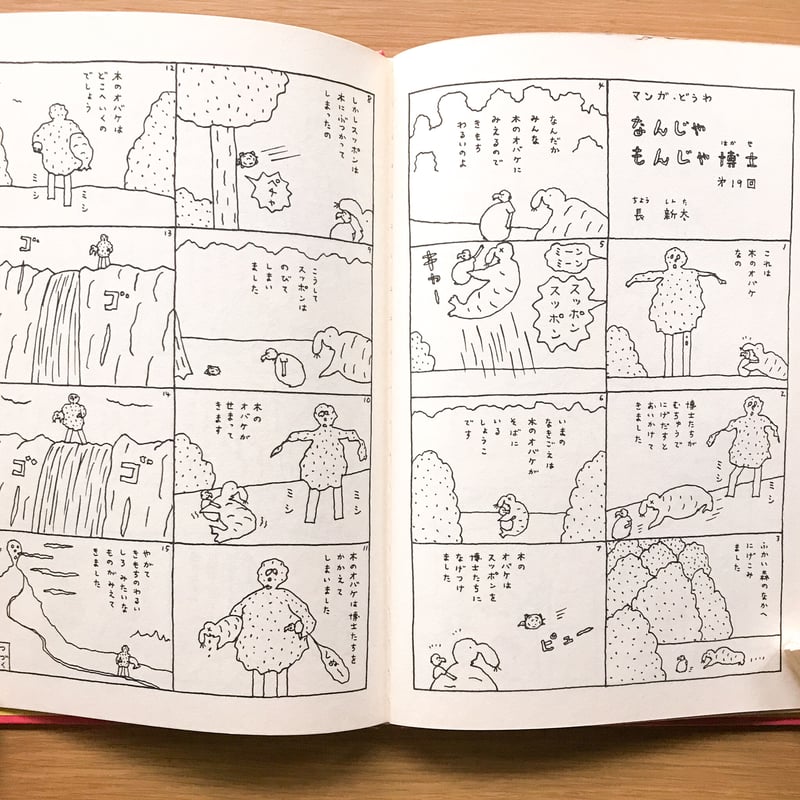 マンガ・どうわ
なんじゃ
もんじゃ博士
はかせ
第19回
長新太
ちょうしんた
1
これは
木のオバケ
なの
2
博士たちが
むちゅうで
にげだすと
おいかけて
きました
ミシ
ミシ
3
ふかい森のなかへ
にげこみ
ました
4
なんだか
みんな
木のオバケに
みえるので
きもち
わるいのよ
5
ミーン
ミーン
スッポン
スッポン
キャー
6
いまの
なきごえは
木のオバケが
そばに
いる
しょうこ
です
7
木の
オバケは
スッポンを
博士たちに
なげつけ
ました
ピュー
8
しかしスッポンは
木にぶつかって
しまったの
ペチャ
9
こうして
スッポンは
のびて
しまい
ました
10
木の
オバケが
せまって
きます
ミシ
ミシ
11
木のオバケは博士たちを
かかえて
しまいました
12
木のオバケは
どこへいくの
でしょう
ミシ
ミシ
13
ゴ
ゴ
14
ゴ
ゴ
15
やがて
きもちのわるい
しろみたいな
ものがみえて
きました
つづく